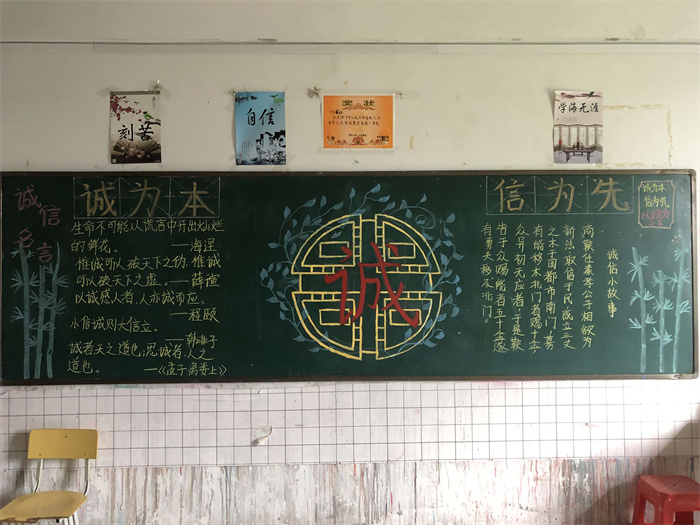 刻苦
自信
奖状
学海无涯
诚信名言
诚为本
生命不可能从谎言中开出灿烂
的鲜花。——海涅
惟诚可以破天下之伪，惟诚
可以破天下之虚。——薛瑄
以诚感人者，人亦诚而应。
——程颐
小信诚则大信立。——韩非子
诚者天之道也；思诚者，人之
道也。——《孟子·离娄上》
诚
信为先
诚为本
信为先
诚信小故事
商鞅任秦孝公子相欲为
新法取信于民成立三丈
之木于国都市南门，募
有能移木北门者赐十金
众异初无应者，于是鞅
于众赐能者五十金遂
有勇夫移及北门。”